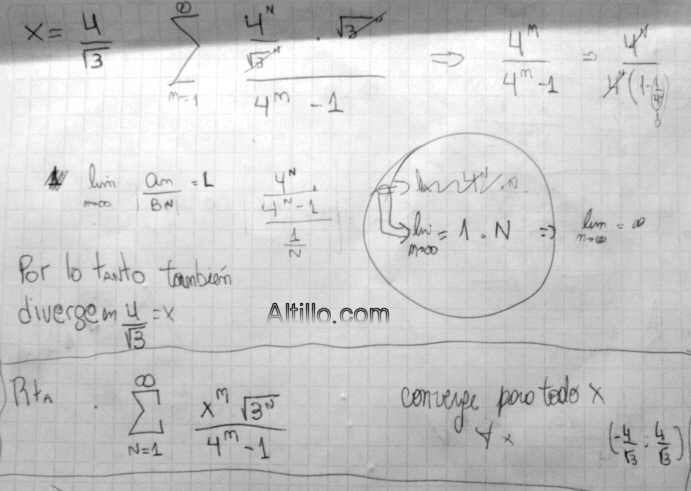 x = 4/√3 ∑ n=1 ∞ (4^n/√3^n · √3^n)/(4^n - 1) ⇒ 4^n/(4^n-1) ⇒ 4^n/(4^n(1-1/4^n)) 0
lim n→∞ an/Bn = L (4^n/(4^n-1))/(1/N)
lim n→∞ = 1 . N ⇒ lim n→∞ = ∞
Por lo tanto también
diverge en 4/√3 = x
Altillo.com
Rta . ∑ N=1 ∞ (x^n √3^n)/(4^n - 1) converge para todo x
∀ x (-4/√3 ; 4/√3)